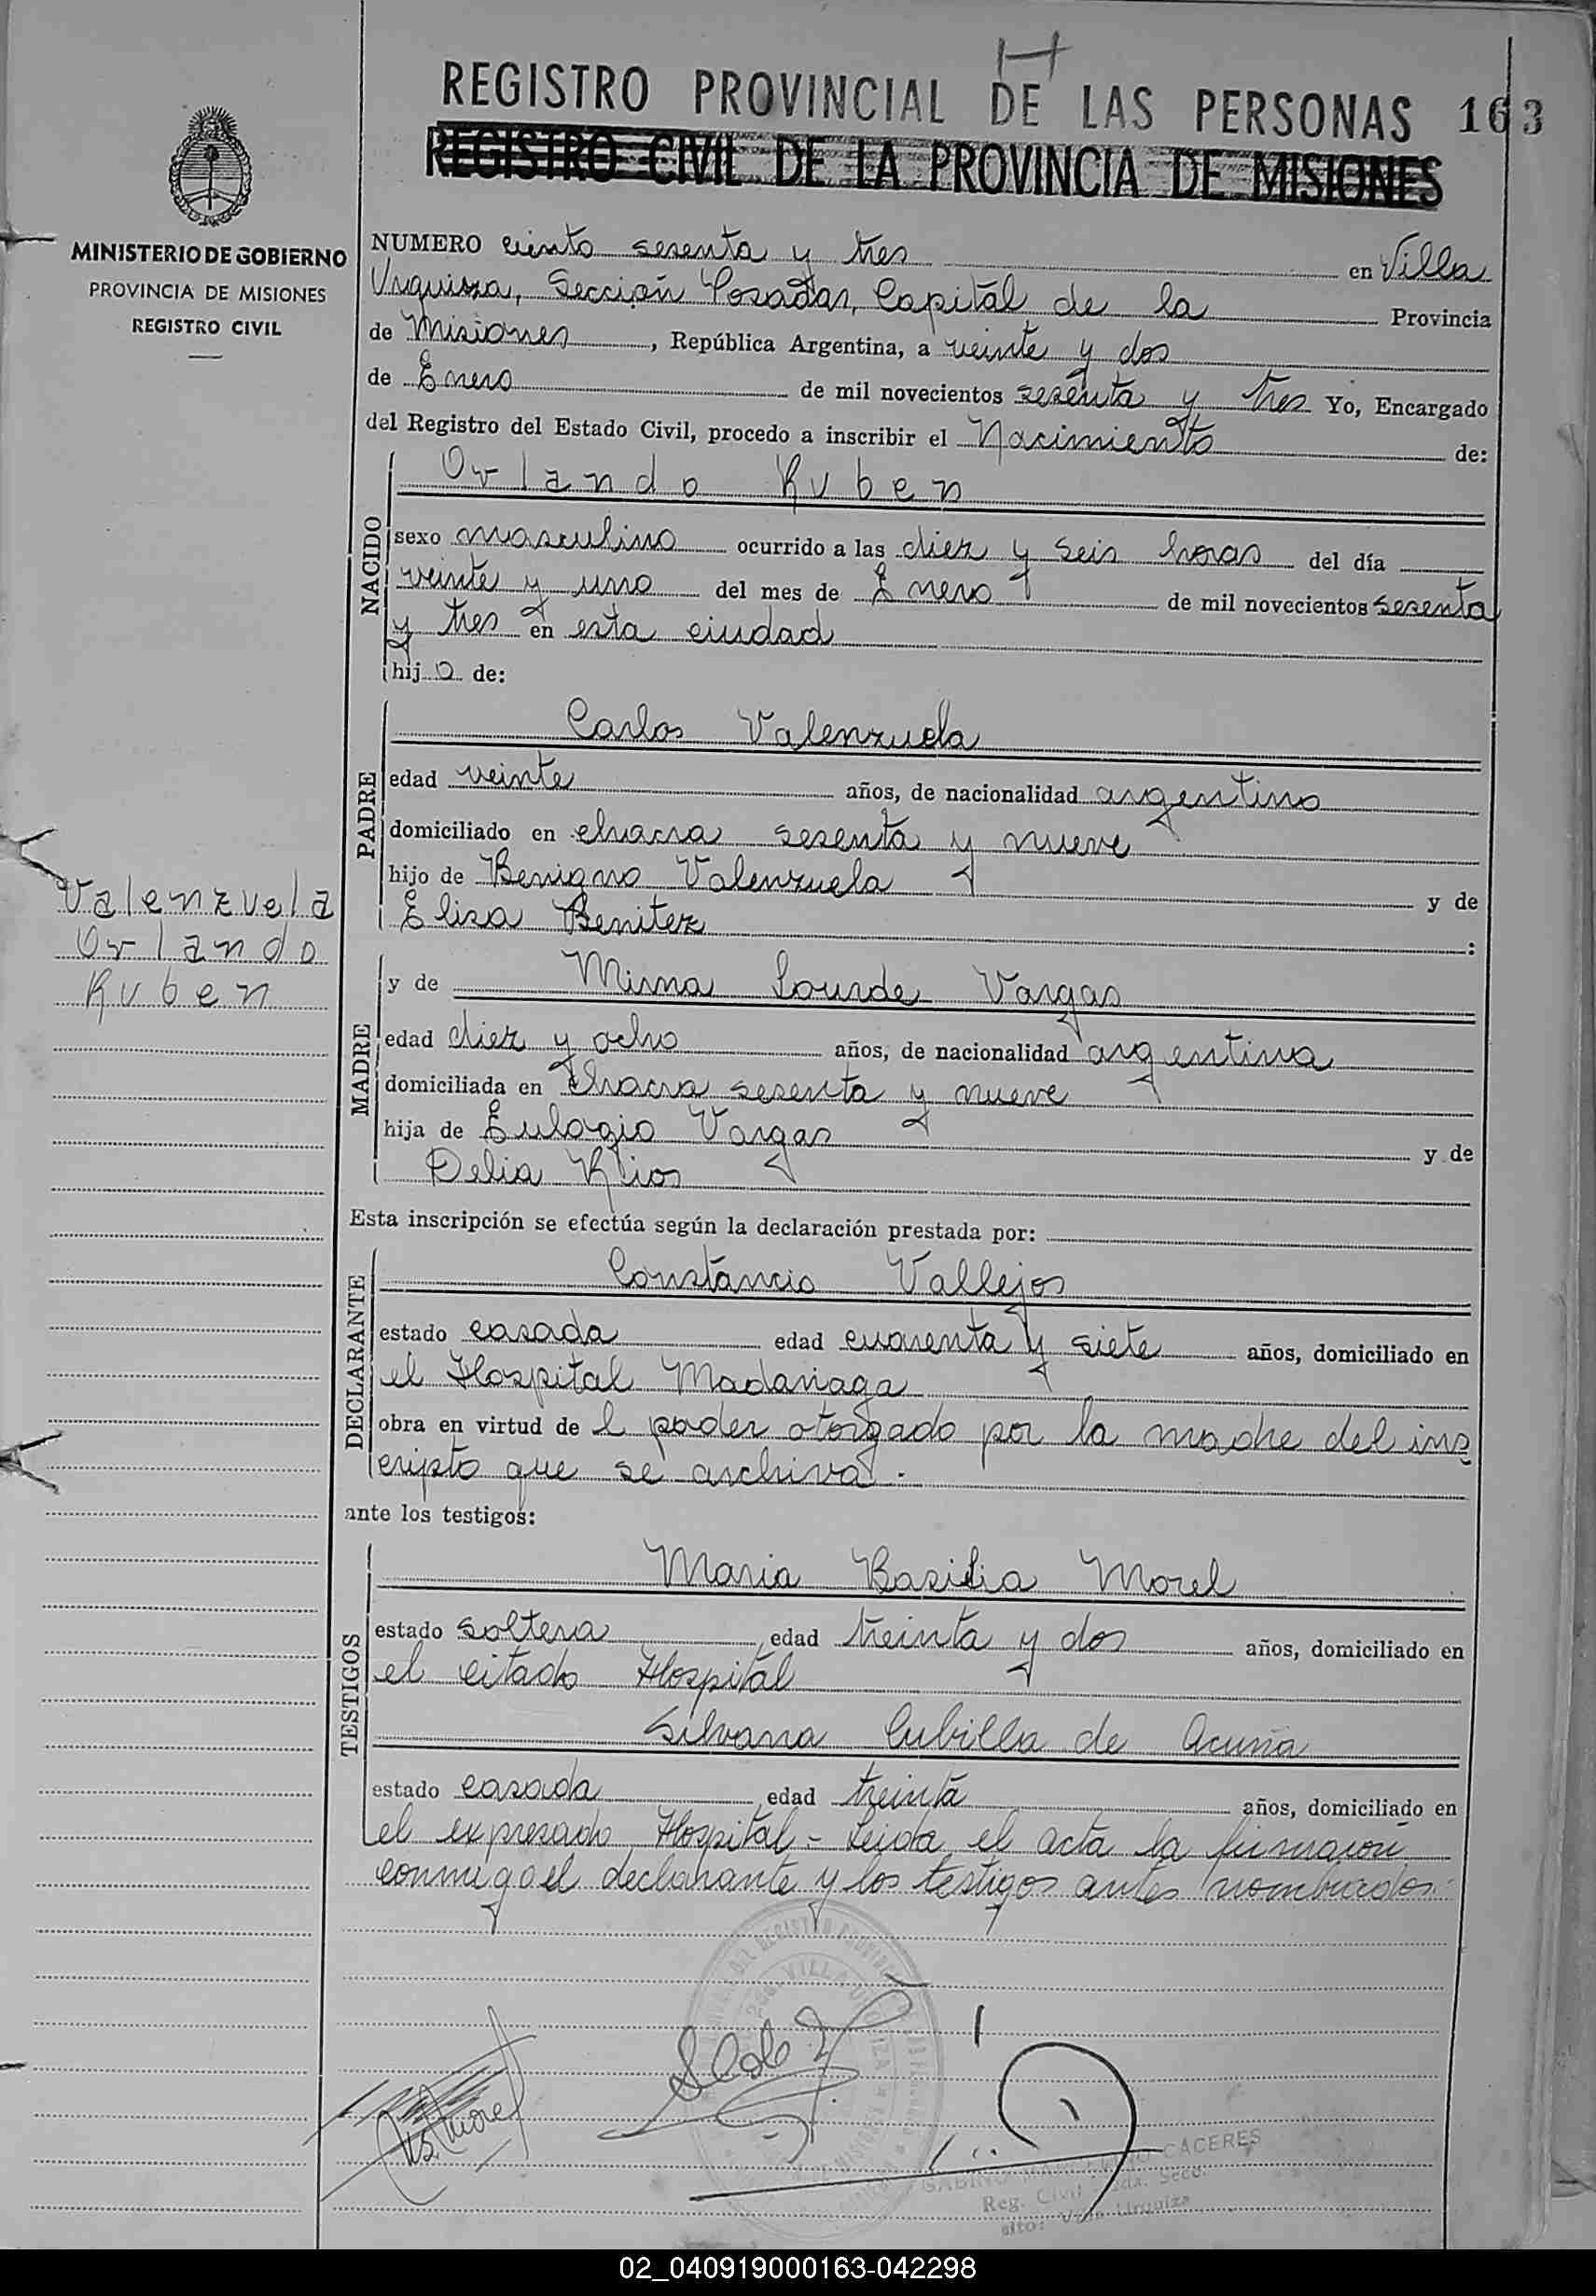 REGISTRO PROVINCIAL DE LAS PERSONAS 163
REGISTRO CIVIL DE LA PROVINCIA DE MISIONES
MINISTERIO DE GOBIERNO
PROVINCIA DE MISIONES
REGISTRO CIVIL
NUMERO ciento sesenta y tres en Villa
Urquiza, Sección Posadas, Capital de la Provincia
de Misiones, República Argentina, a veinte y dos
de Enero de mil novecientos sesenta y tres Yo, Encargado
del Registro del Estado Civil, procedo a inscribir el Nacimiento de:
NACIDO
Orlando Ruben
sexo masculino ocurrido a las diez y seis horas del día
veinte y uno del mes de Enero de mil novecientos sesenta
y tres en esta ciudad
hijo de:
PADRE
Carlos Valenzuela
edad veinte años, de nacionalidad argentino
domiciliado en chacra sesenta y nueve
hijo de Benigno Valenzuela y de
Elisa Benitez :
Valenzuela
Orlando
Ruben
MADRE
y de Mirna Lourde Vargas
edad diez y ocho años, de nacionalidad argentina
domiciliada en Chacra sesenta y nueve
hija de Eulogio Vargas y de
Delia Rios
Esta inscripción se efectúa según la declaración prestada por:
DECLARANTE
Constancia Vallejos
estado casada edad cuarenta y siete años, domiciliado en
el Hospital Madariaga
obra en virtud de l poder otorgado por la madre del ins
cripto que se archiva.
ante los testigos:
TESTIGOS
Maria Basilia Morel
estado soltera edad treinta y dos años, domiciliado en
el citado Hospital
Silvana Cubilla de Acuña
estado casada edad treinta años, domiciliado en
el expresado Hospital - Leida el acta la firmaron
conmigo el declarante y los testigos antes nombrados.
VILLA URQUIZA
CACERES
Reg. Civil
Villa Urquiza
02_040919000163-042298